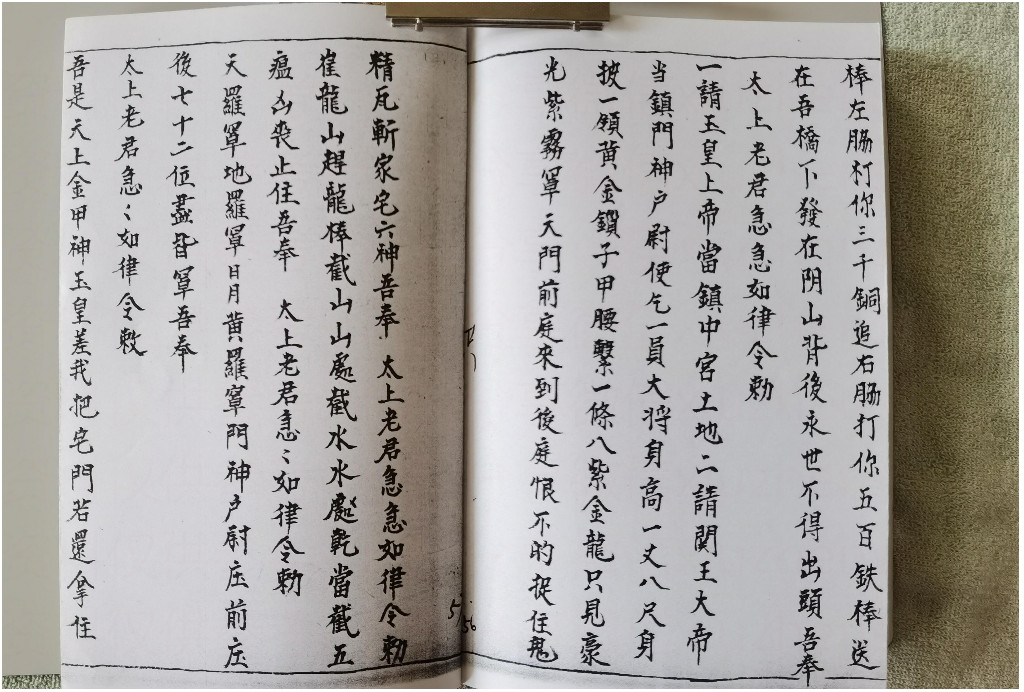 棒左膓打你三千銅追右膓打你五百鉄棒送
在吾橋下發在阴山背後永世不得出頭吾奉
太上老君急急如律令勅
一請玉皇上帝當鎮中宮土地二請関王大帝
当鎮門神户尉使乞一員大将身高一丈八尺身
披一領黄金鎖子甲腰繫一條八紫金龍只見豪
光紫霧罩天門前庭來到後庭恨不的捉住鬼
精瓦斬家宅六神吾奉太上老君急急如律令勅
崔龍山趕龍棒截山山處截水水處乾當截五
瘟凶丧止住吾奉 太上老君急〻如律令勅
天羅罩地羅罩日月黄羅罩門神户尉庄前庄
後七十二位盡皆罩吾奉
太上老君急〻如律令敕
吾是天上金甲神玉皇差我把宅門若還拿住
57
56